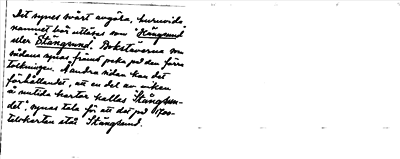 Det synes svårt avgöra, huruvida
namnet bör utläsas som "Hängsund"
eller Stångsund. Bokstäverna som
sådana synas främst peka på den förra
tolkningen. Å andra sidan kan det
förhållandet, att en del av viken
å nutida kartor kallas Stångsun-
det, synas tala för att det på 1700-
talskartan står Stångsund.